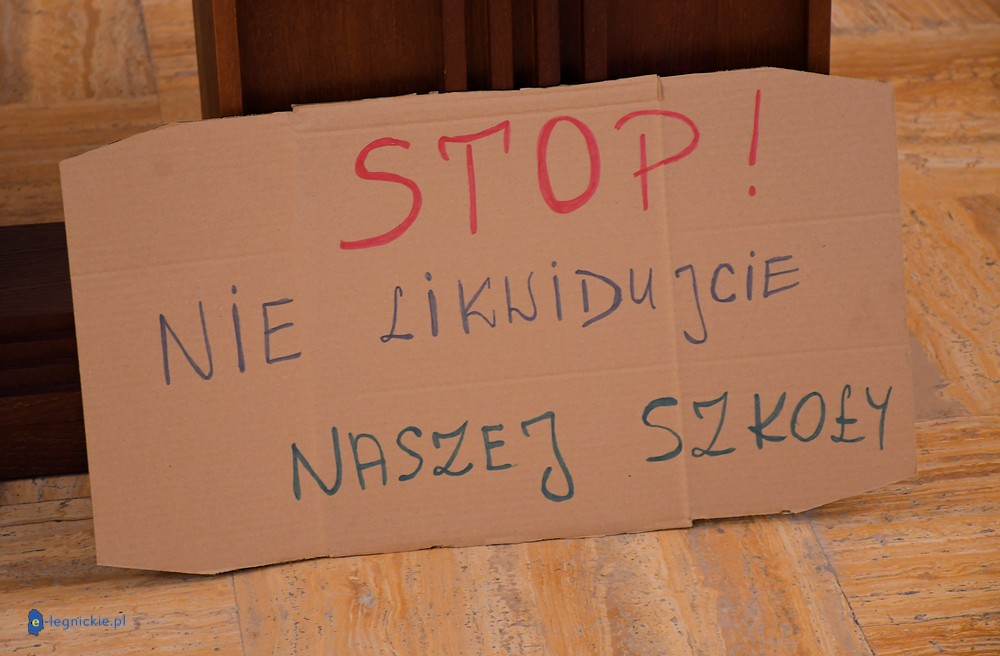 STOP!
NIE LIKWIDUJCIE
NASZEJ SZKOŁY
e-legnickie.pl